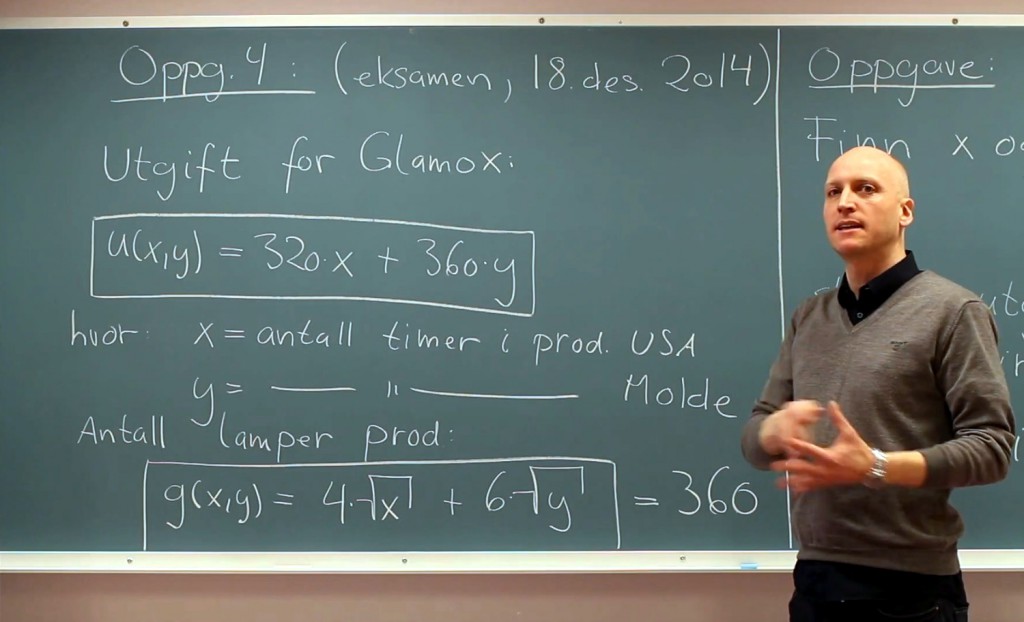 Oppg. 4: (eksamen, 18. des. 2014)
Utgift for Glamox:
u(x,y) = 320·x + 360·y
hvor: x = antall timer i prod. USA
y = —— " —— Molde
Antall lamper prod:
g(x,y) = 4·√x + 6·√y = 360
Oppgave:
Finn x